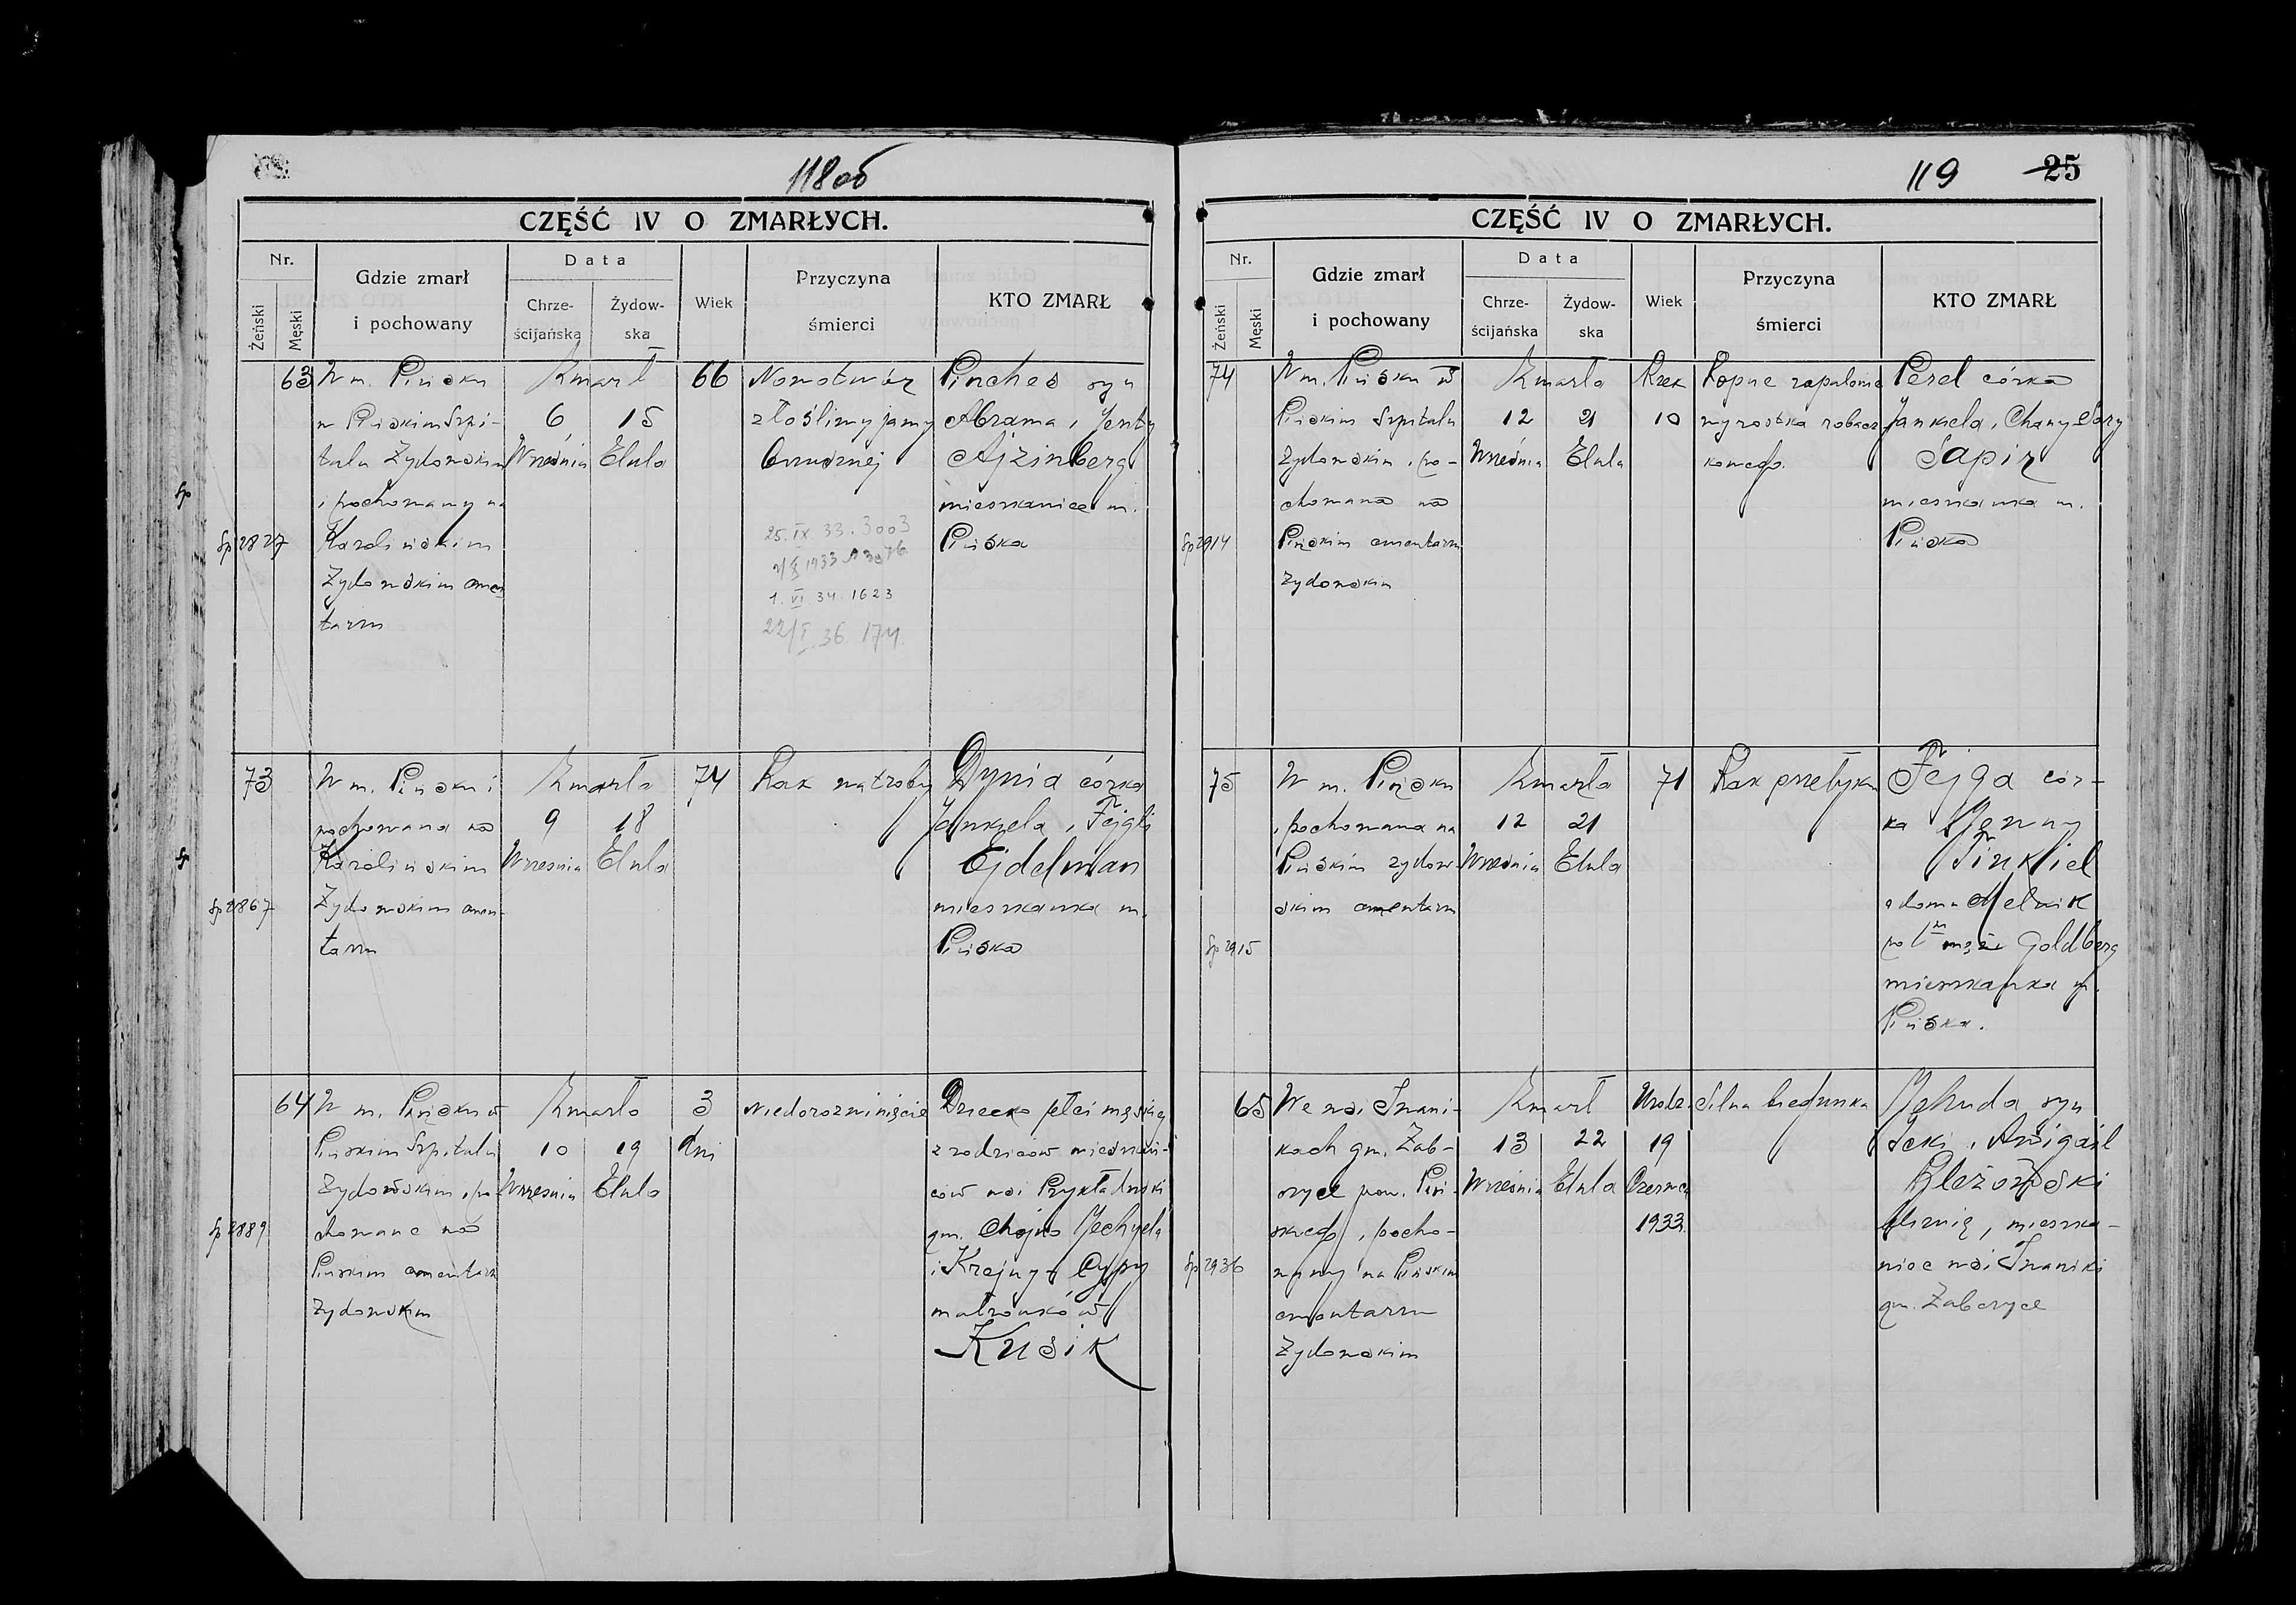 118об
CZĘŚĆ IV O ZMARŁYCH.
Nr.
Żeński
Męski
Gdzie zmarł
i pochowany
Data
Chrze-
ścijańska
Żydow-
ska
Wiek
Przyczyna
śmierci
KTO ZMARŁ
63
W m. Pińsku
w Pińskim Szpi-
talu Żydowskim
i pochowany na
Karolińskim
Żydowskim cmen
tarzu
Sp 2827
Zmarł
6 15
Września Elula
66
Nowotwór
złośliwy jamy
brzusznej
25.IX.33.3003
1.VI.34.1623
22/I.36.174.
Pinches syn
Abrama i Jenty
Ajzinberg
mieszkaniec m.
Pińska
73
W m. Pińsku i
pochowana na
Karolińskim
Żydowskim cmen-
tarzu
Sp 2867
Zmarła
9 18
Września Elula
74
Rak wątroby
Dynia córka
Jankiela i Fejgli
Ejdelman
mieszkanka m.
Pińska
64
W m. Pińsku w
Pińskim Szpitalu
Żydowskim i po
chowane na
Pińskim cmentarzu
żydowskim
Sp 2889
Zmarło
10 19
Września Elula
3
dni
Niedorozwinięcie
Dziecko płci męskiej
z rodziców mieszkań-
ców wsi
gm. Chojno Jechyela
i Krejny-Cypy
małżonków
Kusik
119 25
CZĘŚĆ IV O ZMARŁYCH.
Nr.
Żeński
Męski
Gdzie zmarł
i pochowany
Data
Chrze-
ścijańska
Żydow-
ska
Wiek
Przyczyna
śmierci
KTO ZMARŁ
74
W m. Pińsku w
Pińskim Szpitalu
Żydowskim i po-
chowana na
Pińskim cmentarzu
żydowskim
Sp 2914
Zmarła
12 21
Września Elula
10
Ropne zapalenie
wyrostka robacz
kowego.
Perel córka
Jankiela i Chany Sory
Sapir
mieszkanka m.
Pińska
75
W m. Pińsku
i pochowana na
Pińskim żydow-
skim cmentarzu
Sp 2915
Zmarła
12 21
Września Elula
71
Rak przełyku
Fejga cór-
ka
Finkiel
z domu Melnik
po 1ᵐ mężu Goldberg
mieszkanka m.
Pińska.
65
We wsi Iwani-
kach gm. Żab-
czyce pow. Piń-
skiego i pocho-
wany na Pińskim
cmentarzu
Żydowskim
Sp 2936
Zmarł
13 22
Września Elula
Urodz.
19
Czerwca
1933.
Silna biegunka
Jehuda syn
Icki i Awigail
bliźnię, mieszka-
niec wsi Iwaniki
gm. Żabczyce